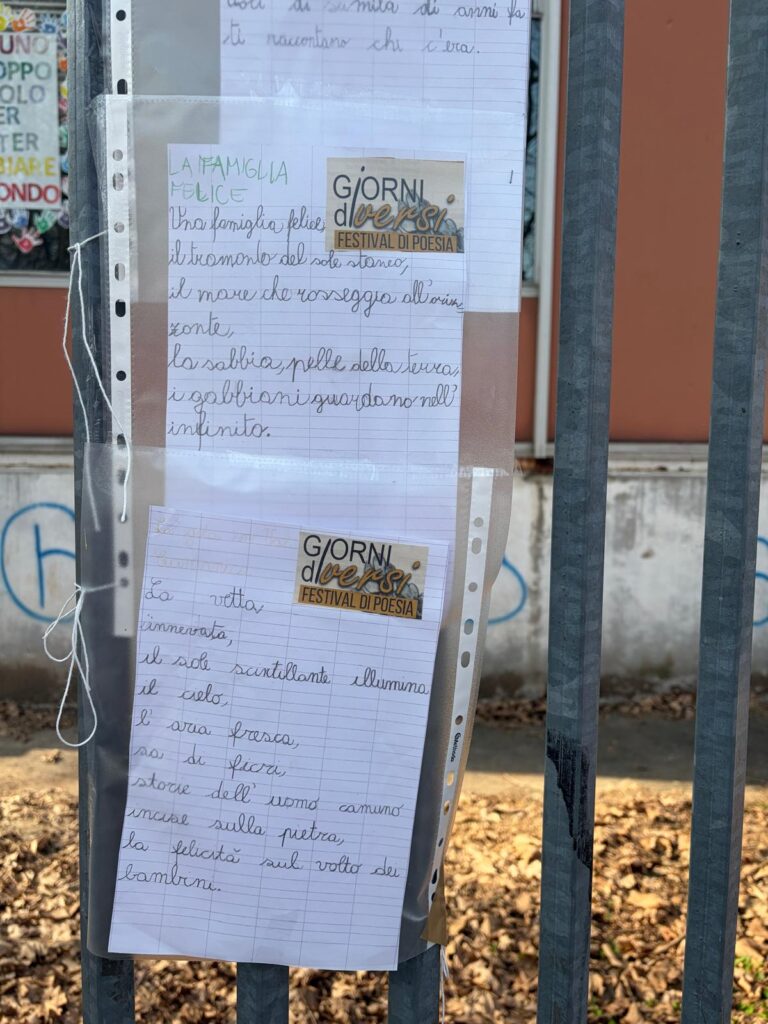 UNO
OPPO
OLO
ER
TER
BIARE
ONDO
di anni fa
ti raccontano chi c'era.
LA FAMIGLIA
FELICE
GiORNI
diversi
FESTIVAL DI POESIA
Una famiglia felice,
il tramonto del sole stanco,
il mare che rosseggia all'oriz
zonte,
la sabbia, pelle della terra,
i gabbiani guardano nell'
infinito.
GiORNI
diversi
FESTIVAL DI POESIA
La vetta
innevata,
il sole scintillante illumina
il cielo,
l'aria fresca,
sa di fiori,
storie dell'uomo camuno
incise sulla pietra,
la felicità sul volto dei
bambini.
Favorit